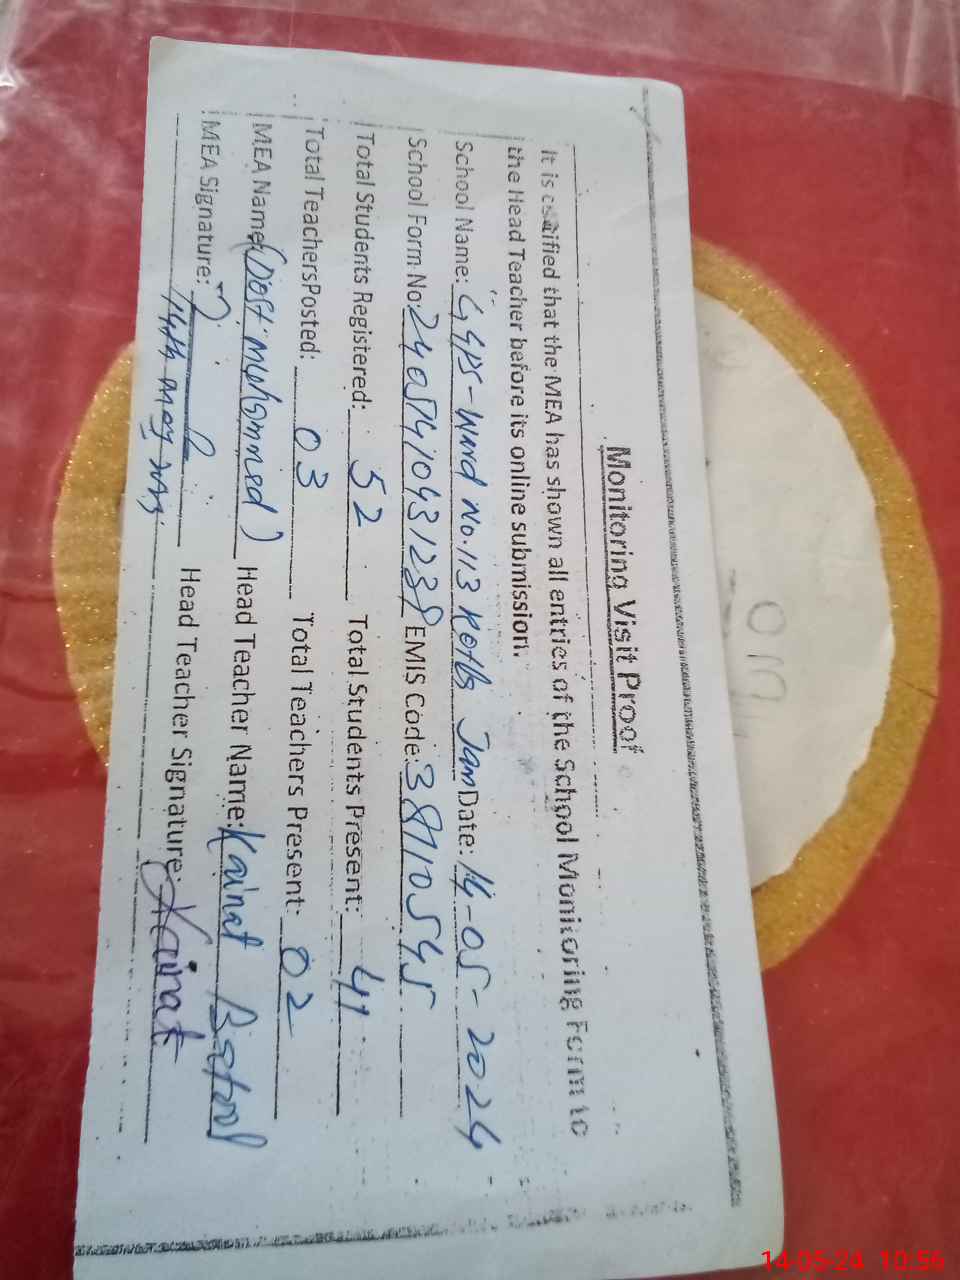 Monitoring Visit Proof
It is certified that the MEA has shown all entries of the School Monitoring Form to
the Head Teacher before its online submission.
School Name: GGPS-Ward No.113 Kotla Jam Date: 14-05-2024
School Form No: EMIS Code: 38710545
Total Students Registered: 52 Total Students Present: 41
Total Teachers Posted: 03 Total Teachers Present: 02
MEA Name: (Dost Mohammed) Head Teacher Name: Kainat Batool
MEA Signature: Head Teacher Signature: Kainat
14th May
14-05-24 10:56